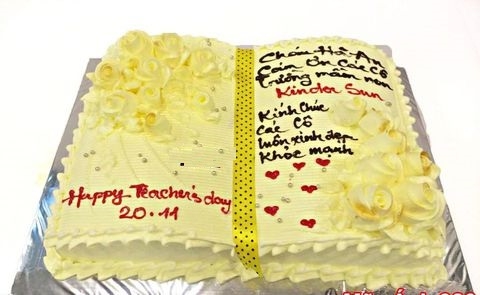 Happy Teacher's day
20.11
Cháu Hà An
Cảm Ơn Các Cô
Trường mầm non
Kinder Sun
Kính Chúc
Các Cô
luôn xinh đẹp
Khỏe mạnh